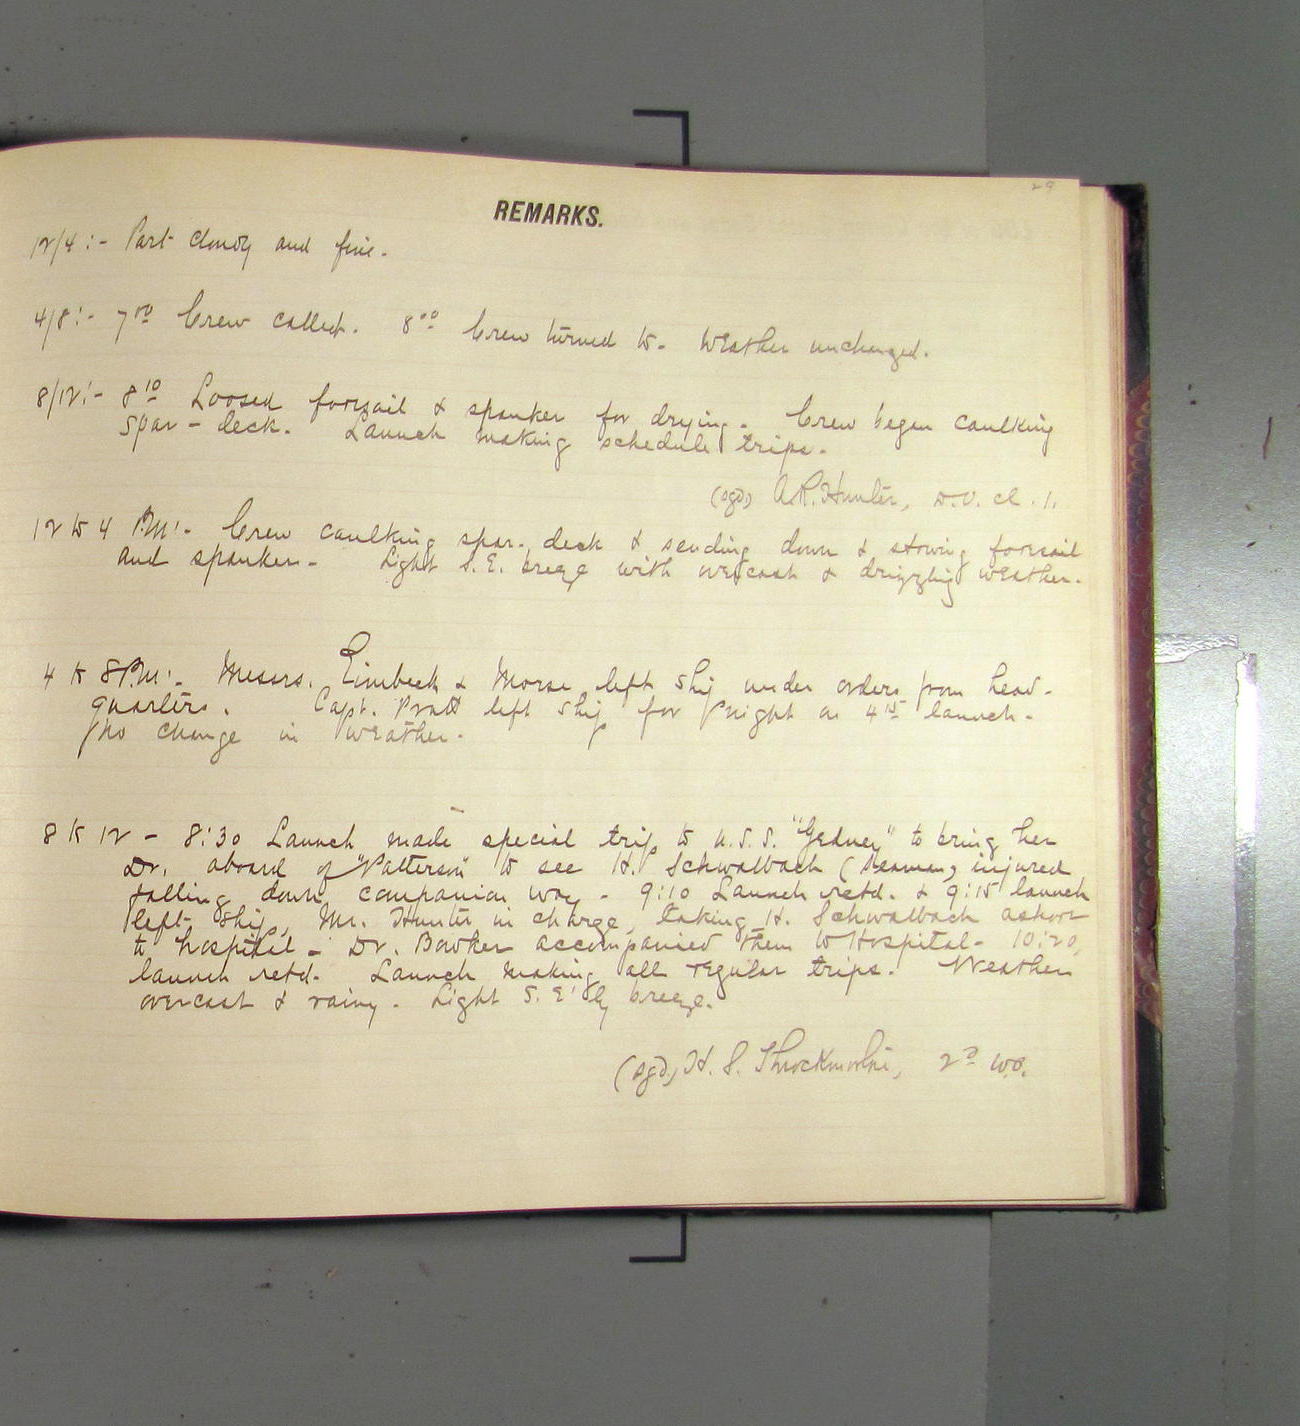 29
REMARKS.
12/4:- Part cloudy and fine.
4/8:- 7⁰⁰ Crew called. 8⁰⁰ Crew turned to. Weather unchanged.
8/12:- 8¹⁰ Loosed foresail & spanker for drying. Crew began caulking
spar-deck. Launch making schedule trips.
(sgd) A.R. Hunter, D.O. cl. 1.
12 to 4 P.M:- Crew caulking spar-deck & sending down & stowing foresail
and spanker. Light S.E. breeze with overcast & drizzling weather.
4 to 8 P.M:- Messrs. Eimbeck & Morse left ship under orders from head-
quarters. Capt. Pratt left ship for night on 4¹⁵ launch.
No change in weather.
8 to 12 - 8:30 Launch made special trip to U.S.S. "Gedney" to bring her
Dr. aboard of "Patterson" to see H. Schwalbach (seaman, injured
falling down companion way - 9:10 Launch retd. & 9:15 launch
left ship, Mr. Hunter in charge, taking H. Schwalbach ashore
to hospital - Dr. Bowker accompanied them to Hospital - 10:20,
launch retd. Launch making all regular trips. Weather
overcast & rainy. Light S.E'ly breeze.
(sgd,) H. S. Throckmorton, 2ᴰ W.O.